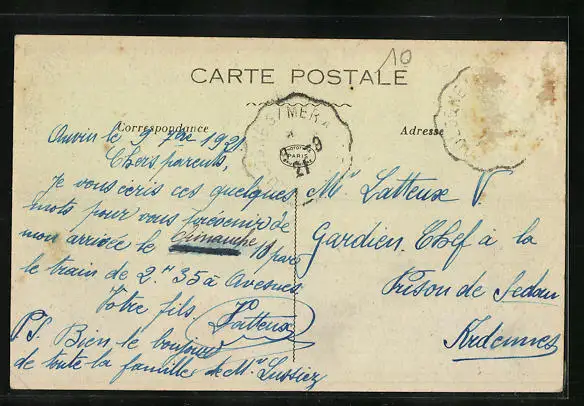 10
CARTE POSTALE
Correspondance
Adresse
PARIS
Anvin le 9 7bre 1921
Chers parents,
Je vous écris ces quelques
mots pour vous prévenir de
mon arrivée le dimanche 10 par
le train de 2.H 35 à Avesnes
Votre fils Latteux
PS. Bien le bonjour
de toute la famille de Mr Lussiez
Mr Latteux V
Gardien Chef à la
Prison de Sedan
Ardennes